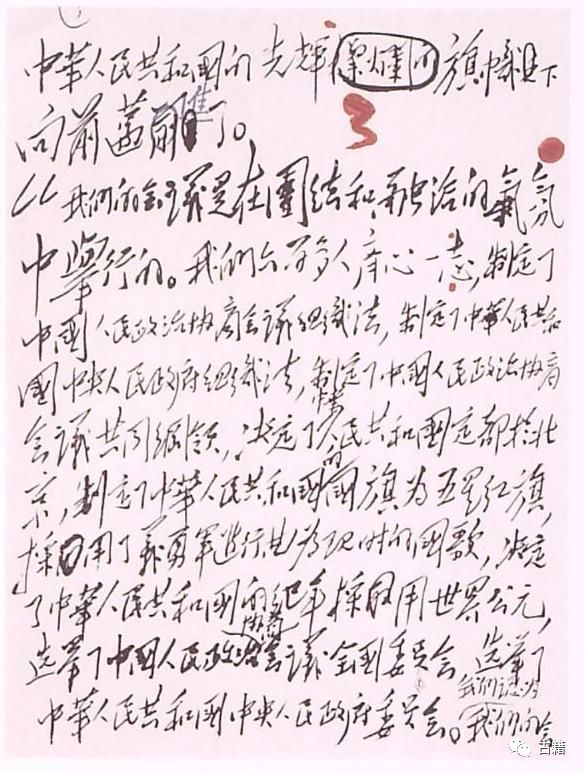 中華人民共和國的光輝燦爛的旗幟下
向前邁進了。
我們的會議是在團結和融洽的氣氛
中舉行的。我們六百多人,齊心一志,制定了
中國人民政治协商會議組織法,制定了中華人民共和
國中央人民政府組織法,制定了中國人民政治协商
會議共同綱領,决定了中華人民共和國定都於北
京,制定了中華人民共和國的國旗为五星红旗,
採用了義勇軍進行曲为現時的國歌,决定
了中華人民共和國的紀年採用世界公元,
选舉了中國人民政治协商會議全國委員会,选舉了
我們認为
中華人民共和國中央人民政府委員会。我們的會
古籍